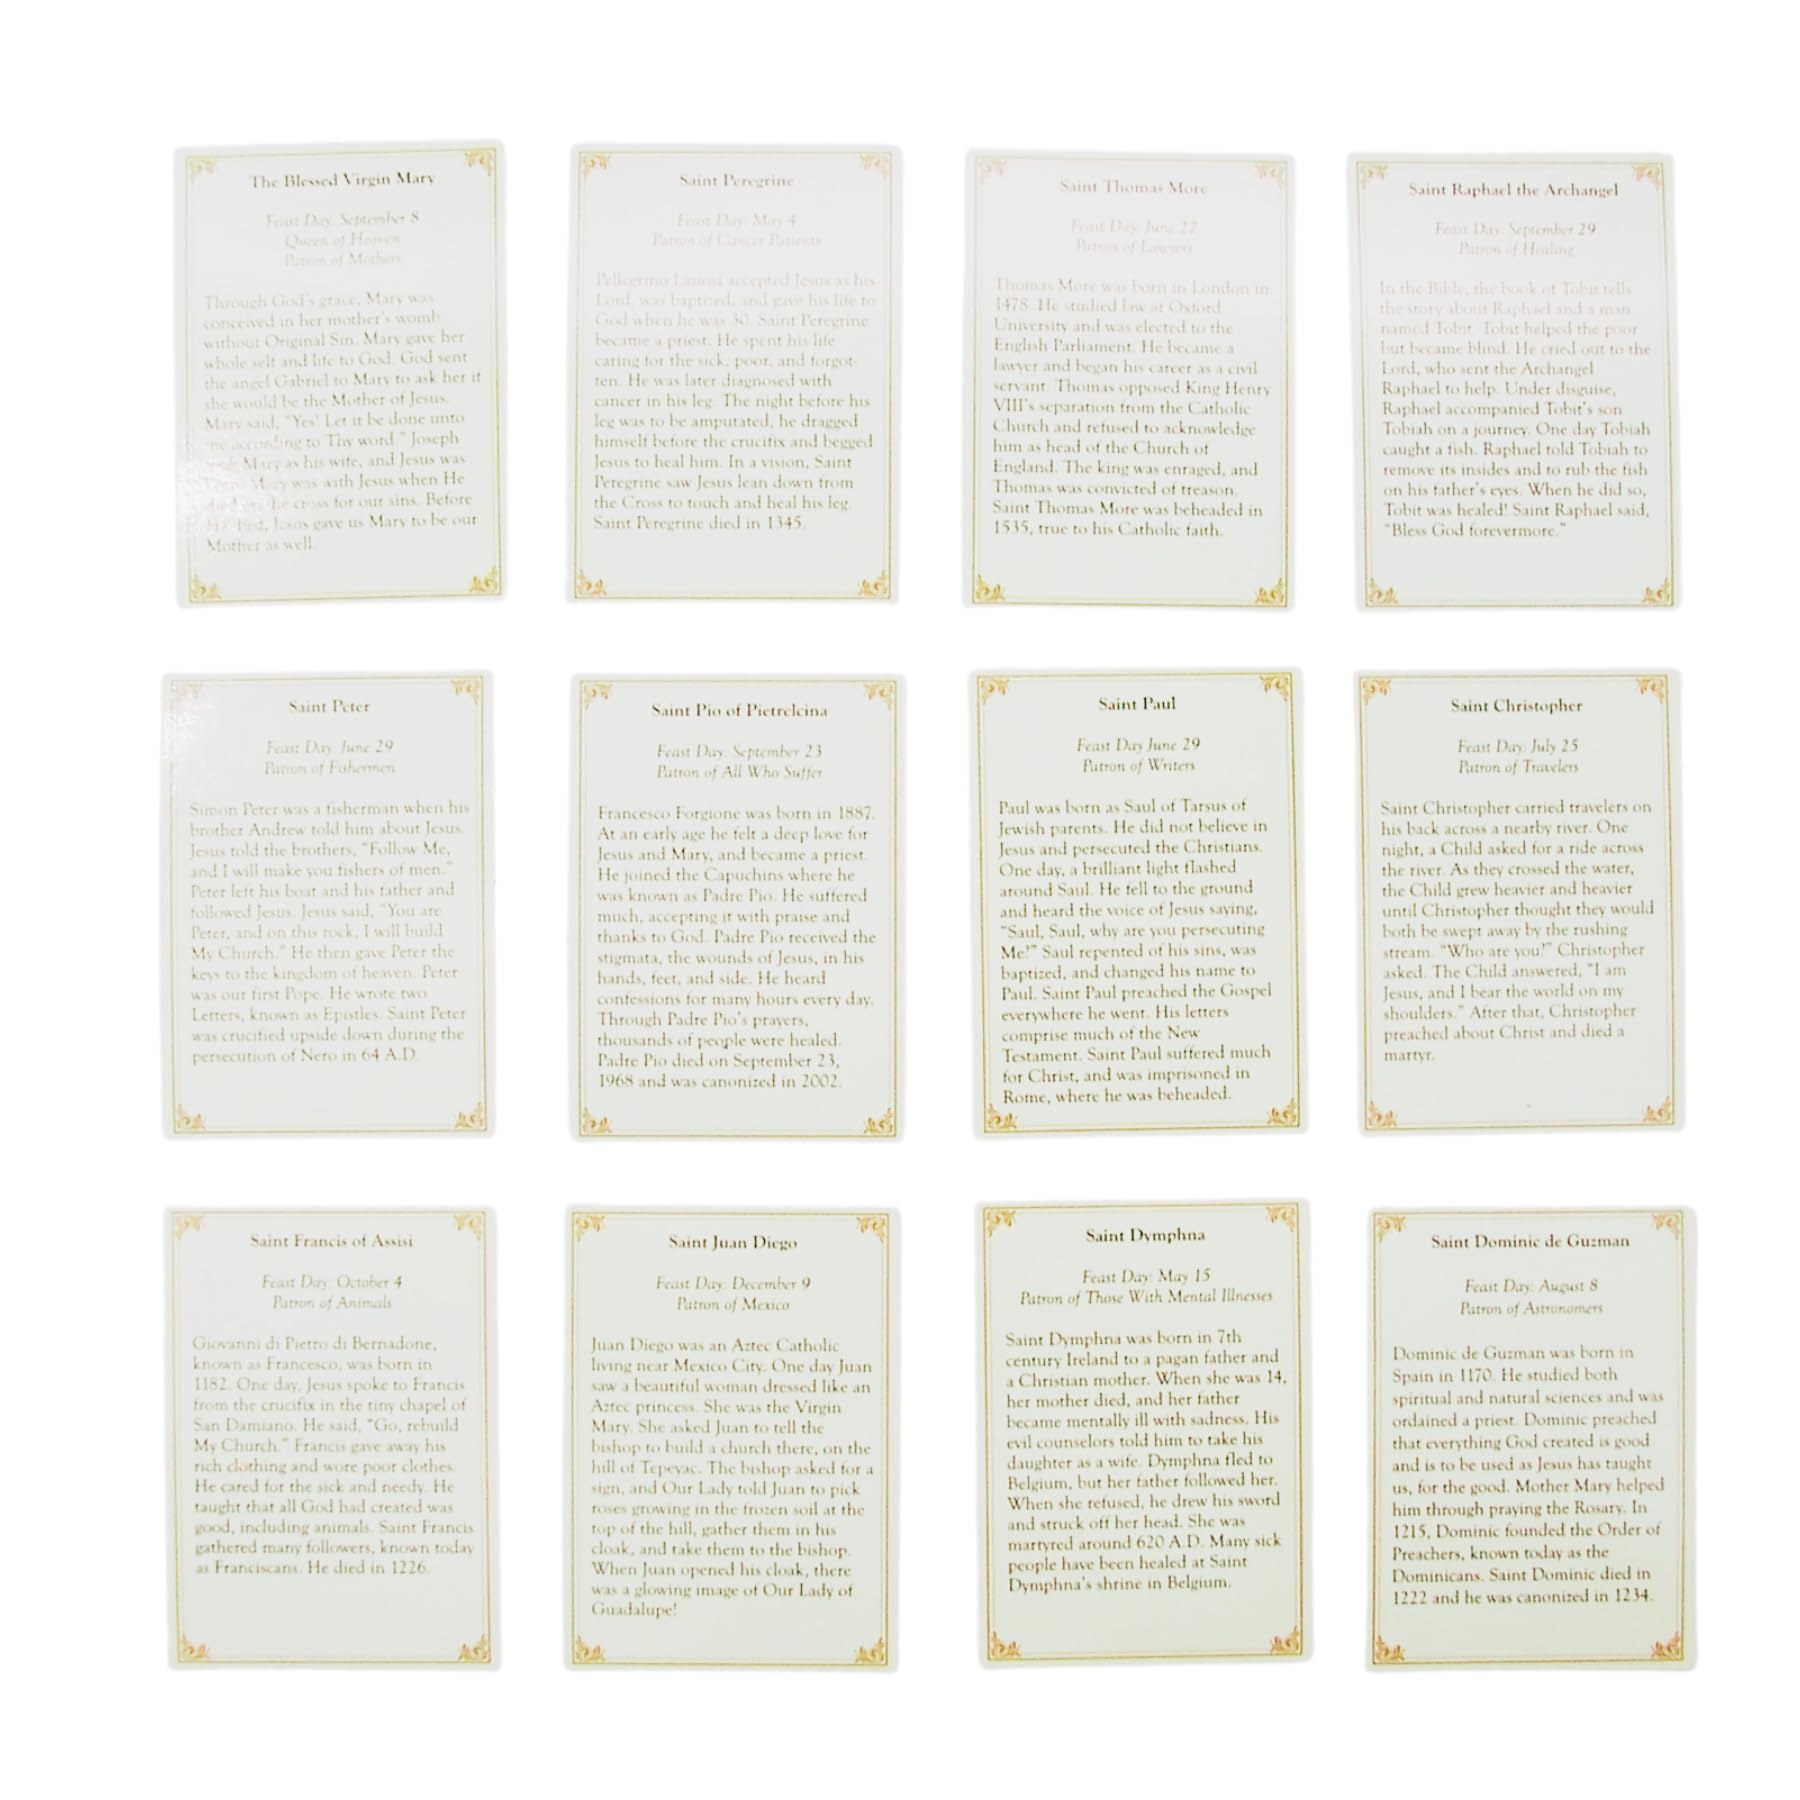 The Blessed Virgin Mary
Feast Day: September 8
Queen of Heaven
Patron of Mothers
Through God's grace, Mary was
conceived in her mother's womb
without Original Sin. Mary gave her
whole self and life to God. God sent
the angel Gabriel to Mary to ask her if
she would be the Mother of Jesus.
Mary said, "Yes! Let it be done unto
me according to Thy word." Joseph
Mary as his wife, and Jesus was
Mary was with Jesus when He
cross for our sins. Before
Jesus gave us Mary to be our
Mother as well.
Saint Peregrine
Feast Day: May 4
Patron of Cancer Patients
Pellegrino Latiosi accepted Jesus as his
Lord, was baptized, and gave his life to
God when he was 30. Saint Peregrine
became a priest. He spent his life
caring for the sick, poor, and forgot-
ten. He was later diagnosed with
cancer in his leg. The night before his
leg was to be amputated, he dragged
himself before the crucifix and begged
Jesus to heal him. In a vision, Saint
Peregrine saw Jesus lean down from
the Cross to touch and heal his leg.
Saint Peregrine died in 1345.
Saint Thomas More
Feast Day: June 22
Patron of Lawyers
Thomas More was born in London in
1478. He studied law at Oxford
University and was elected to the
English Parliament. He became a
lawyer and began his career as a civil
servant. Thomas opposed King Henry
VIII's separation from the Catholic
Church and refused to acknowledge
him as head of the Church of
England. The king was enraged, and
Thomas was convicted of treason.
Saint Thomas More was beheaded in
1535, true to his Catholic faith.
Saint Raphael the Archangel
Feast Day: September 29
Patron of Healing
In the Bible, the book of Tobit tells
the story about Raphael and a man
named Tobit. Tobit helped the poor
but became blind. He cried out to the
Lord, who sent the Archangel
Raphael to help. Under disguise,
Raphael accompanied Tobit's son
Tobiah on a journey. One day Tobiah
caught a fish. Raphael told Tobiah to
remove its insides and to rub the fish
on his father's eyes. When he did so,
Tobit was healed! Saint Raphael said,
"Bless God forevermore."
Saint Peter
Feast Day: June 29
Patron of Fishermen
Simon Peter was a fisherman when his
brother Andrew told him about Jesus.
Jesus told the brothers, "Follow Me,
and I will make you fishers of men."
Peter left his boat and his father and
followed Jesus. Jesus said, "You are
Peter, and on this rock, I will build
My Church." He then gave Peter the
keys to the kingdom of heaven. Peter
was our first Pope. He wrote two
Letters, known as Epistles. Saint Peter
was crucified upside down during the
persecution of Nero in 64 A.D.
Saint Pio of Pietrelcina
Feast Day: September 23
Patron of All Who Suffer
Francesco Forgione was born in 1887.
At an early age he felt a deep love for
Jesus and Mary, and became a priest.
He joined the Capuchins where he
was known as Padre Pio. He suffered
much, accepting it with praise and
thanks to God. Padre Pio received the
stigmata, the wounds of Jesus, in his
hands, feet, and side. He heard
confessions for many hours every day.
Through Padre Pio's prayers,
thousands of people were healed.
Padre Pio died on September 23,
1968 and was canonized in 2002.
Saint Paul
Feast Day June 29
Patron of Writers
Paul was born as Saul of Tarsus of
Jewish parents. He did not believe in
Jesus and persecuted the Christians.
One day, a brilliant light flashed
around Saul. He fell to the ground
and heard the voice of Jesus saying,
"Saul, Saul, why are you persecuting
Me?" Saul repented of his sins, was
baptized, and changed his name to
Paul. Saint Paul preached the Gospel
everywhere he went. His letters
comprise much of the New
Testament. Saint Paul suffered much
for Christ, and was imprisoned in
Rome, where he was beheaded.
Saint Christopher
Feast Day: July 25
Patron of Travelers
Saint Christopher carried travelers on
his back across a nearby river. One
night, a Child asked for a ride across
the river. As they crossed the water,
the Child grew heavier and heavier
until Christopher thought they would
both be swept away by the rushing
stream. "Who are you?" Christopher
asked. The Child answered, "I am
Jesus, and I bear the world on my
shoulders." After that, Christopher
preached about Christ and died a
martyr.
Saint Francis of Assisi
Feast Day: October 4
Patron of Animals
Giovanni di Pietro di Bernadone,
known as Francesco, was born in
1182. One day, Jesus spoke to Francis
from the crucifix in the tiny chapel of
San Damiano. He said, "Go, rebuild
My Church." Francis gave away his
rich clothing and wore poor clothes.
He cared for the sick and needy. He
taught that all God had created was
good, including animals. Saint Francis
gathered many followers, known today
as Franciscans. He died in 1226.
Saint Juan Diego
Feast Day: December 9
Patron of Mexico
Juan Diego was an Aztec Catholic
living near Mexico City. One day Juan
saw a beautiful woman dressed like an
Aztec princess. She was the Virgin
Mary. She asked Juan to tell the
bishop to build a church there, on the
hill of Tepeyac. The bishop asked for a
sign, and Our Lady told Juan to pick
roses growing in the frozen soil at the
top of the hill, gather them in his
cloak, and take them to the bishop.
When Juan opened his cloak, there
was a glowing image of Our Lady of
Guadalupe!
Saint Dymphna
Feast Day: May 15
Patron of Those With Mental Illnesses
Saint Dymphna was born in 7th
century Ireland to a pagan father and
a Christian mother. When she was 14,
her mother died, and her father
became mentally ill with sadness. His
evil counselors told him to take his
daughter as a wife. Dymphna fled to
Belgium, but her father followed her.
When she refused, he drew his sword
and struck off her head. She was
martyred around 620 A.D. Many sick
people have been healed at Saint
Dymphna's shrine in Belgium.
Saint Dominic de Guzman
Feast Day: August 8
Patron of Astronomers
Dominic de Guzman was born in
Spain in 1170. He studied both
spiritual and natural sciences and was
ordained a priest. Dominic preached
that everything God created is good
and is to be used as Jesus has taught
us, for the good. Mother Mary helped
him through praying the Rosary. In
1215, Dominic founded the Order of
Preachers, known today as the
Dominicans. Saint Dominic died in
1222 and he was canonized in 1234.